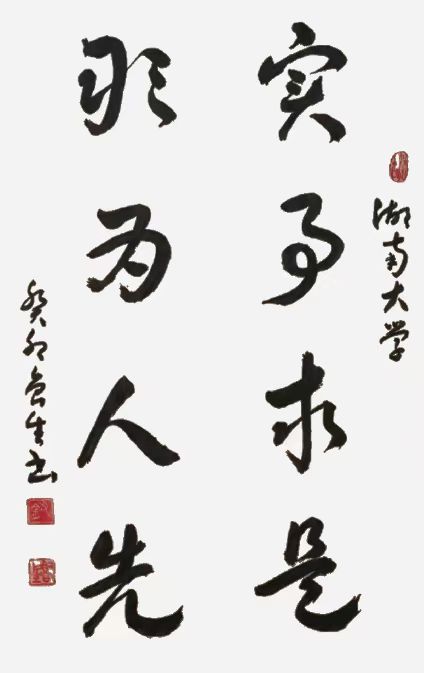 湖南大学
实事求是
敢为人先
癸卯鲁生书